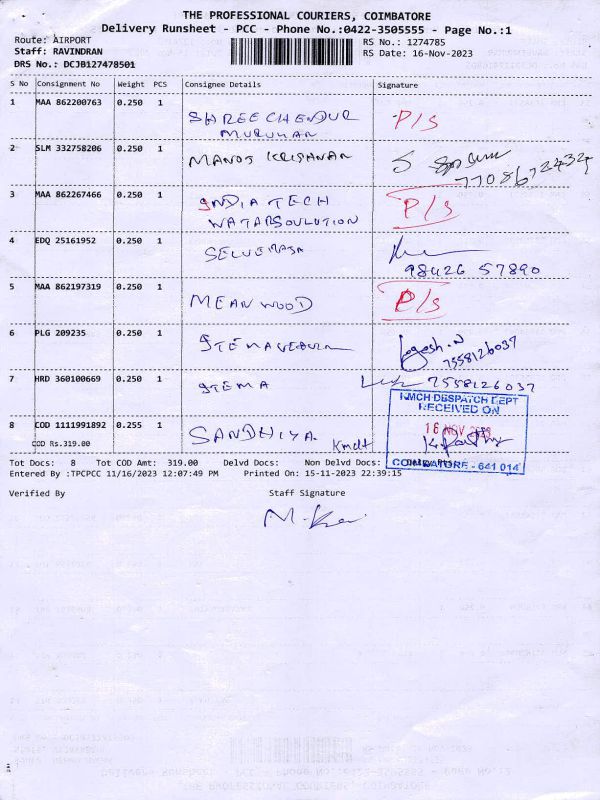 THE PROFESSIONAL COURIERS, COIMBATORE
Delivery Runsheet - PCC - Phone No.:0422-3505555 - Page No.:1
Route: AIRPORT
RS No.: 1274785
Staff: RAVINDRAN
RS Date: 16-Nov-2023
DRS No.: DCJB127478501
S No Consignment No Weight PCS Consignee Details Signature
1 MAA 862200763 0.250 1 SHREECHENDUR P/S
MURUKAN
2 SLM 332758206 0.250 1 MANOJ KRISHNAN S
7708672434
3 MAA 862267466 0.250 1 INDIA TECH P/S
WATARSOULUTION
4 EDQ 25161952 0.250 1 SELVERAJA
98426 57890
5 MAA 862197319 0.250 1 MEANWOOD P/S
6 PLG 209235 0.250 1 Logesh.N
7558126037
7 HRD 360100669 0.250 1 STEMA 7558126037
8 COD 1111991892 0.255 1 SANDHIYA. Kmch
COD Rs.319.00
KMCH DESPATCH DEPT
RECEIVED ON
16 NOV 2023
COIMBATORE - 641 014
Tot Docs: 8 Tot COD Amt: 319.00 Delvd Docs: Non Delvd Docs:
Entered By :TPCPCC 11/16/2023 12:07:49 PM Printed On: 15-11-2023 22:39:15
Verified By Staff Signature